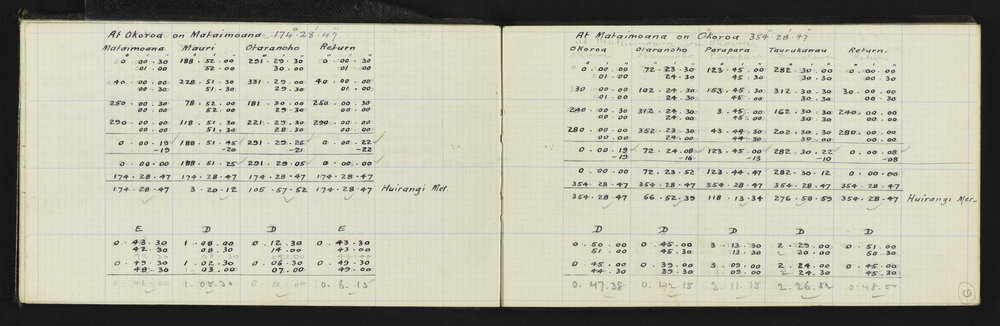 At Okoroa on Mataimoana 174° 28' 47"
Mataimoana Mauri Otaranoho Return
0 . 00 . 30 188 . 52 . 00 291 . 29 . 30 0 . 00 . 30
01 . 00 52 . 00 30 . 00 00 . 30
40 . 00 . 00 228 . 51 . 30 331 . 29 . 00 40 . 00 . 00
00 . 30 51 . 30 29 . 30 01 . 00
250 . 00 . 30 78 . 52 . 00 181 . 30 . 00 250 . 00 . 30
00 . 00 52 . 00 29 . 30 00 . 00
290 . 00 . 00 118 . 51 . 30 221 . 29 . 00 290 . 00 . 00
00 . 00 51 . 30 28 . 30 00 . 00
0 . 00 . 19 188 . 51 . 45 291 . 29 . 26 0 . 00 . 22
-19 -20 -21 -22
0 . 00 . 00 188 . 51 . 25 291 . 29 . 05 0 . 00 . 00
174 . 28 . 47 174 . 28 . 47 174 . 28 . 47 174 . 28 . 47
174 . 28 . 47 3 . 20 . 12 105 . 57 . 52 174 . 28 . 47 Huirangi Mer.
E D D E
0 . 43 . 30 1 . 08 . 00 0 . 12 . 30 0 . 43 . 30
42 . 30 08 . 30 14 . 00 43 . 00
0 . 49 . 30 1 . 02 . 30 0 . 06 . 30 0 . 49 . 30
48 . 30 03 . 00 07 . 00 49 . 00
0 . 46 . 00 1 . 05 . 30 0 . 10 . 00 0 . 6 . 15
At Mataimoana on Okoroa 354° 28' 47"
Okoroa Otaranoho Parapara Taurakawau Return
0 . 00 . 00 72 . 23 . 30 123 . 45 . 00 282 . 30 . 00 0 . 00 . 00
01 . 00 24 . 30 45 . 30 30 . 30 00 . 30
30 . 00 . 00 102 . 24 . 30 153 . 45 . 30 312 . 30 . 30 30 . 00 . 00
01 . 00 24 . 30 45 . 00 30 . 30 00 . 30
240 . 00 . 30 312 . 24 . 30 3 . 45 . 00 162 . 30 . 30 240 . 00 . 00
00 . 00 24 . 00 45 . 00 30 . 30 00 . 00
280 . 00 . 00 352 . 23 . 30 43 . 44 . 30 202 . 30 . 30 280 . 00 . 00
00 . 00 24 . 00 44 . 30 30 . 30 00 . 00
0 . 00 . 19 72 . 24 . 08 123 . 45 . 00 282 . 30 . 22 0 . 00 . 08
-19 -16 -13 -10 -08
0 . 00 . 00 72 . 23 . 52 123 . 44 . 47 282 . 30 . 12 0 . 00 . 00
354 . 28 . 47 354 . 28 . 47 354 . 28 . 47 354 . 28 . 47 354 . 28 . 47
354 . 28 . 47 66 . 52 . 39 118 . 13 . 34 276 . 58 . 59 354 . 28 . 47 Huirangi Mer.
D D D D D
0 . 50 . 00 0 . 45 . 00 3 . 13 . 30 2 . 29 . 00 0 . 51 . 00
51 . 00 45 . 30 13 . 30 30 . 00 50 . 30
0 . 45 . 00 0 . 39 . 00 3 . 09 . 00 2 . 24 . 00 0 . 45 . 00
44 . 30 39 . 30 09 . 00 24 . 30 45 . 30
0 . 47 . 38 0 . 42 . 15 3 . 11 . 15 2 . 26 . 52 0 . 48 . 00